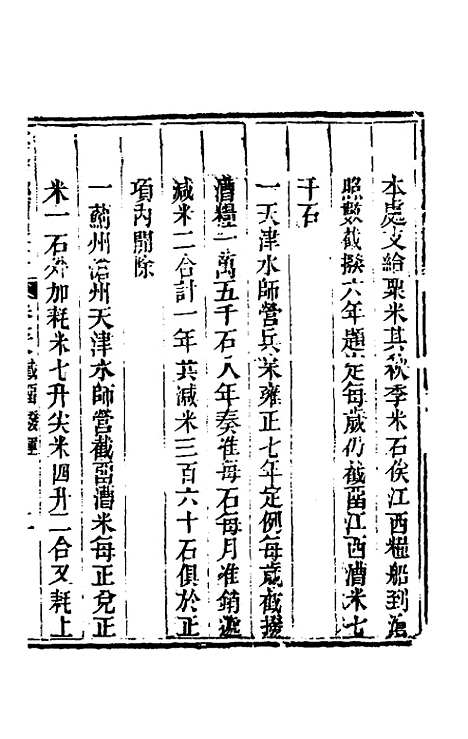 本處支給粟米其秋季米石俟江西糧船到滄
照數截撥六年題定每歲仍截畱江西漕米七
千石
一天津水師營兵米雍正七年定例每歲截撥
漕糧一萬五千石八年奏准每石每月准銷遞
減米二合計一年共減米三百六十石俱於正
項內開除
一薊州滄州天津水師營截畱漕米每正兌正
米一石外加耗米七升尖米四升二合又耗上
截畱撥運